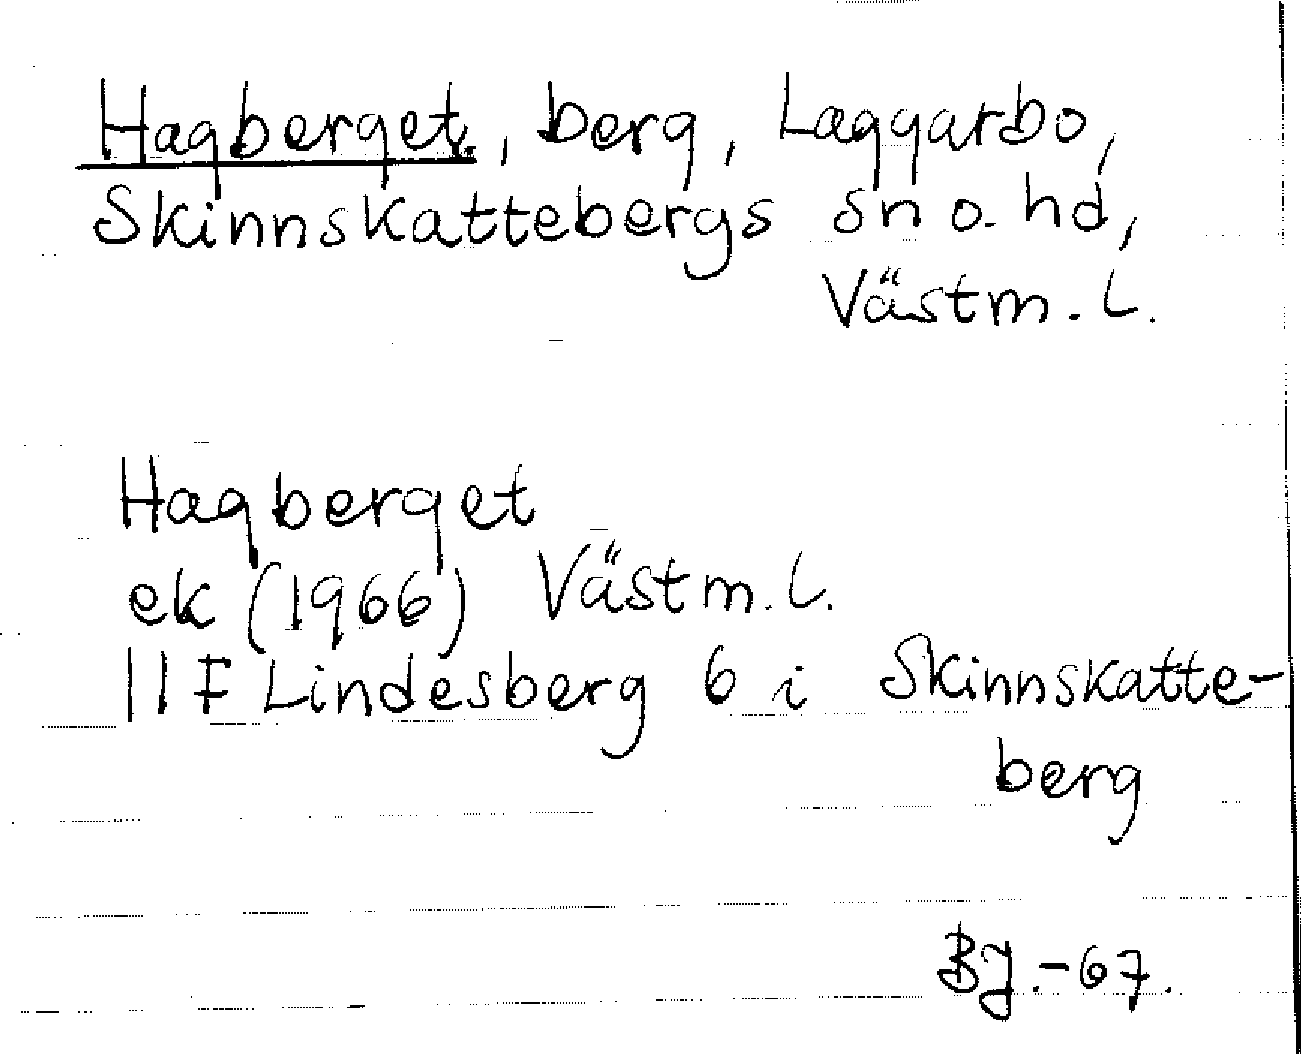 Hagberget, berg, Laggarbo,
Skinnskattebergs sn o. hd,
Västm. L.
Hagberget
ek (1966) Västm. L.
11F Lindesberg 6 i Skinnskatte-
berg
BJ.-67.